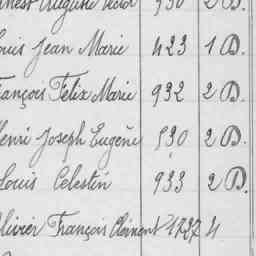 Auguste Victor 930 2 D.
Louis Jean Marie 423 1 D.
François Felix Marie 932 2 D.
Henri Joseph Eugène 530 2 D.
Louis Celestin 933 2 D.
Olivier François Clément 1727 4